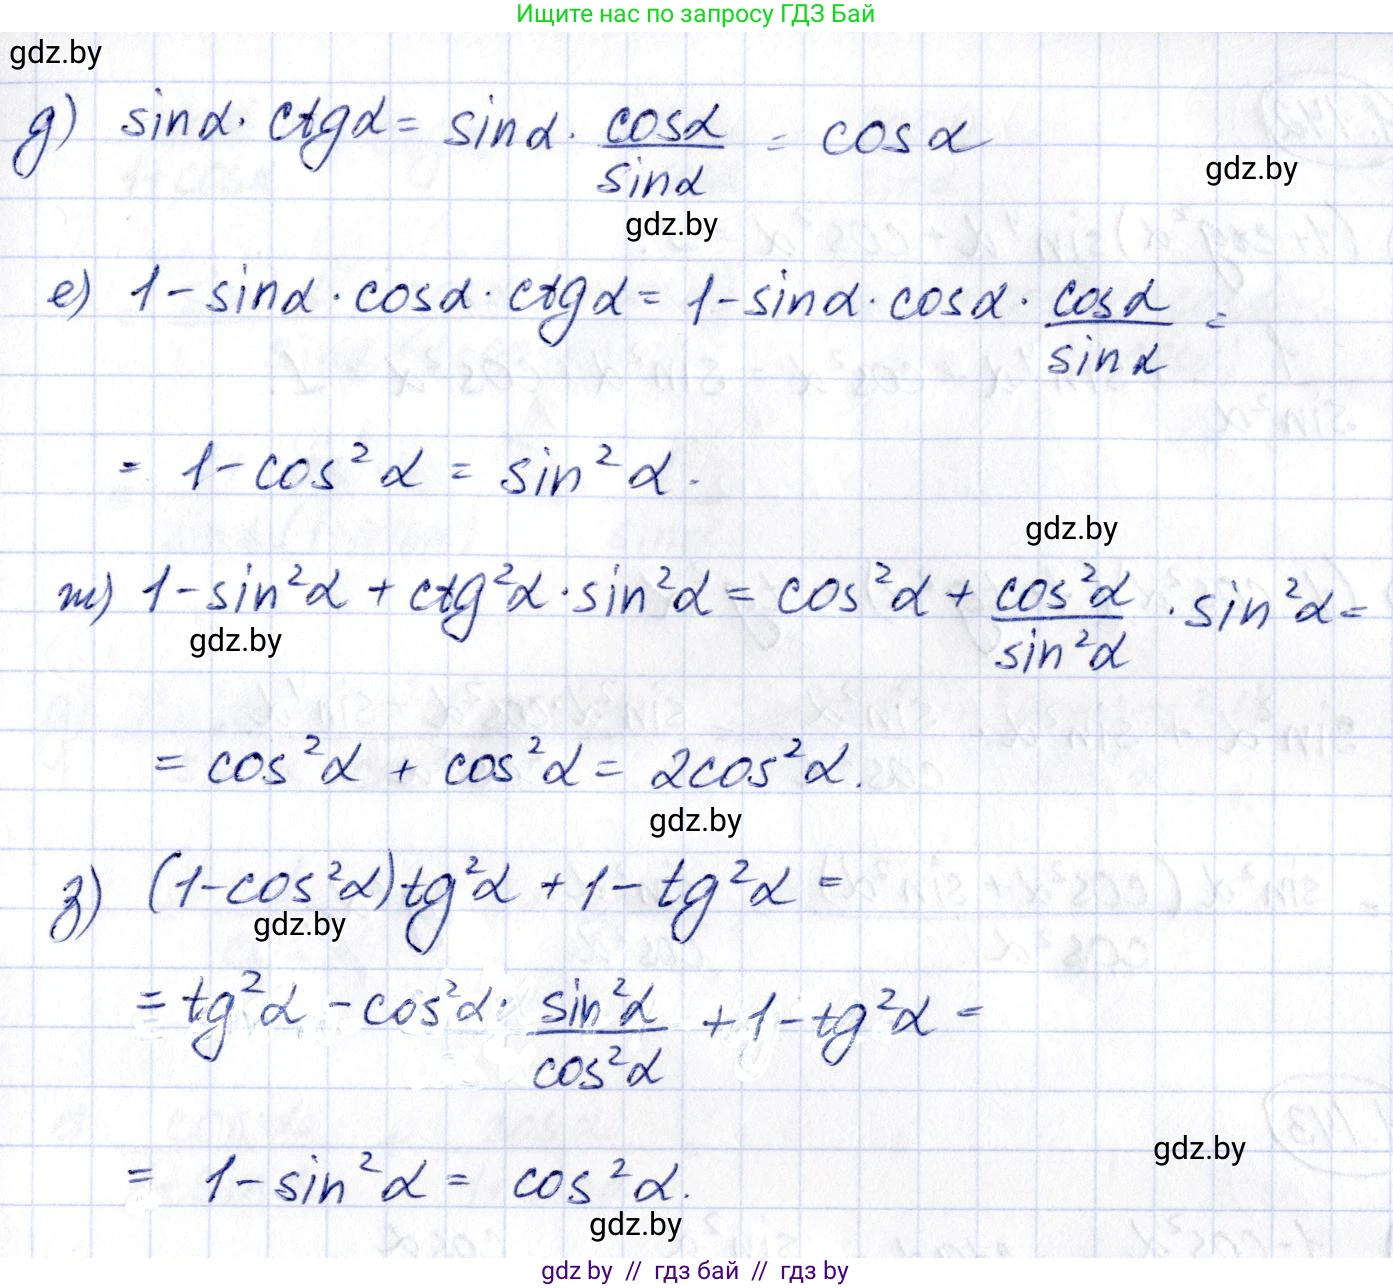 Ищите нас по запросу ГДЗ Бай
gdz.by
д) sinα · ctgα = sinα · cosα/sinα = cosα
gdz.by
gdz.by
е) 1 - sinα · cosα · ctgα = 1 - sinα · cosα · cosα/sinα =
= 1 - cos²α = sin²α.
gdz.by
ж) 1 - sin²α + ctg²α · sin²α = cos²α + cos²α/sin²α · sin²α =
gdz.by
= cos²α + cos²α = 2cos²α.
gdz.by
з) (1 - cos²α)tg²α + 1 - tg²α =
gdz.by
= tg²α - cos²α · sin²α/cos²α + 1 - tg²α =
gdz.by
= 1 - sin²α = cos²α.
gdz.by
gdz.by // гдз бай // гдз by